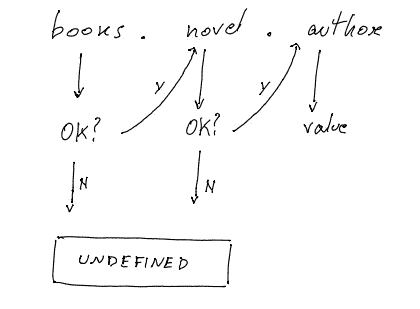 books . novel . author
Y Y
OK? OK? value
N N
UNDEFINED